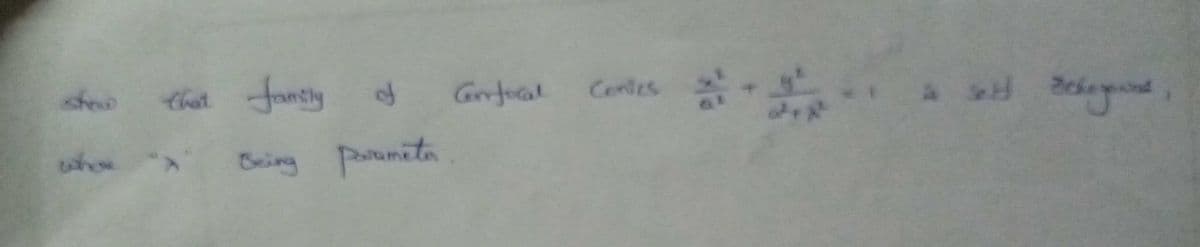 show that family of Confocal Conics x²/a² + y²/a²+λ² = 1 is self
where "λ" Being parameter.